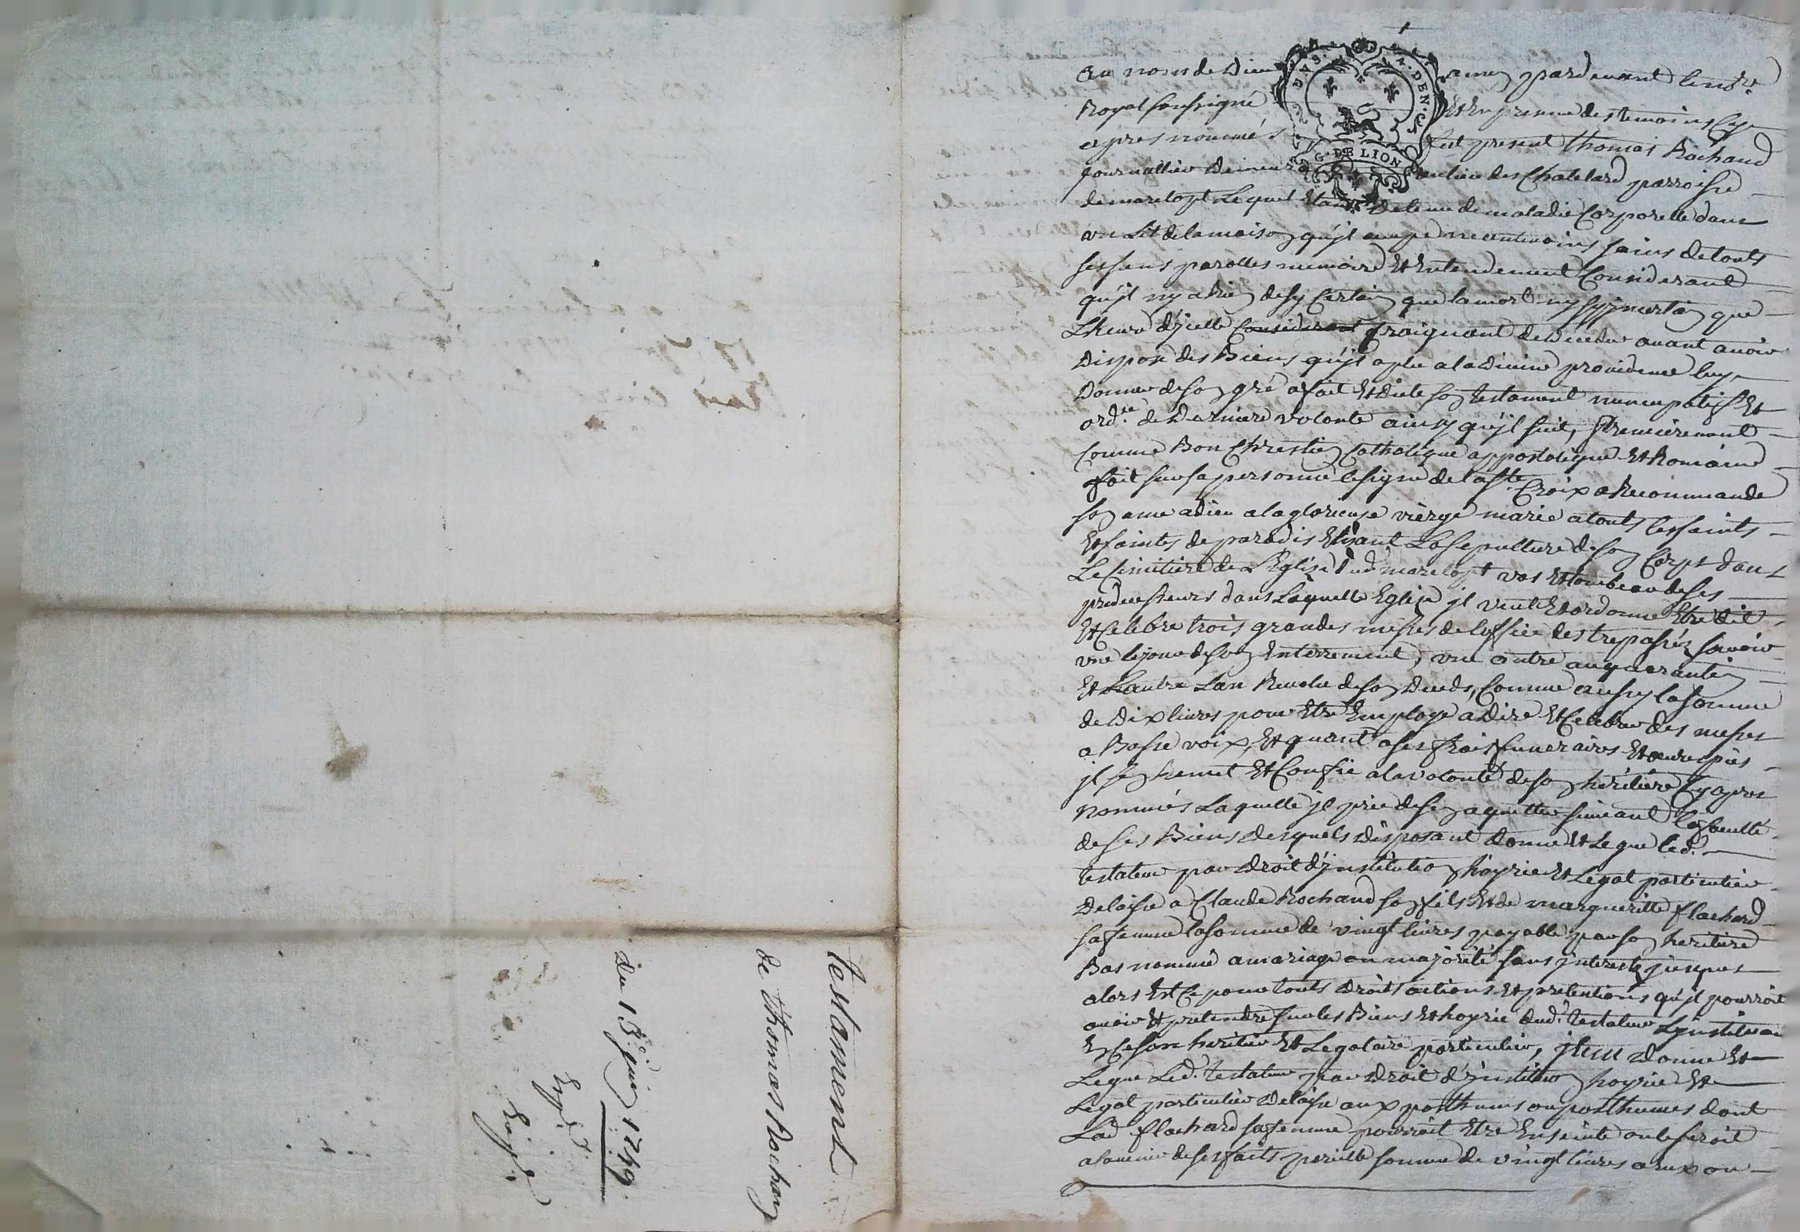 Au nom de Dieu amen pardevant le no.re
Royal soussigné Et En presence des temoins Cy
apres nommés fut present Thomas Rochand
journallier Demeurant au lieu des Chatelard parroisse
de marclopt Lequel Etant detenu de maladie Corporelle dans
un Lit de la maison qu'jl occupe neantmoins sains de touts
ses sens parolles memoire Et Entendement Considerant
qu'jl ny a Rien de sy Certain que la mort ny sy jncertain que
Lheure d'jcelle Considerant Craignant de deceder avant avoir
Dispose des Biens qu'jl a plu a la Divine providence luy
Donner de son gré a fait Et dicte son testament nuncupatif Et
ord.ce de Derniere volonte ainsy qu'jl suit, Premierement
Comme Bon Chrestien Catholique appostolique Et Romain
fait sur sa personne le signe de la s.te Croix a Recommande
son ame a dieu a la glorieuse vierge marie a touts les saints
Et saintes de paradis Elisant La sepulture de son Corps dans
Le Cimitiere de L'Eglise dud. marclopt vas Et tombeau de ses
predecesseurs dans Laquelle Eglise jl veut Et ordonne Etre dit
Et Celebre trois grandes messes de loffice des trepassés savoir
une le jour de son Enterrement, une autre au quarantin
Et Lautre Lan Revolu de son Deceds, Comme aussy la somme
de Dix livres pour Etre Employe a Dire Et Celebrer des messes
a Basse voix, Et quant a ses frais funeraires Et oeuvres pies
jl sen Remet Et Confie a la volonté de son heritiere Cy apres
nommés Laquelle jl prie de sen aquitter suivant la faculté
de ses Biens desquels disposant donne Et Legue led.
testateur par droit d'jnstitution hoyrie Et Legat particulier
Delaisse a Claude Rochand son fils Et de marguerite flachard
sa femme la somme de vingt livres payable par son heritiere
Bas nommée a mariage ou majorité sans jnterests jusques
alors Et Ce pour touts droits actions Et pretentions qu'jl pourroit
avoir Et pretendre sur les Biens Et hoyrie dud. testateur Linstituant
En Ce son heritier Et Legataire particulier, jtem donne Et
Legue Led. testateur par droit d'jnstitution hoyrie Et
Legat particulier delaisse aux posthums ou posthumes dont
Lad. flachard sa femme pourroit Etre Enseinte ou le seroit
a lavenir de ses faits pareille somme de vingt livres a eux ou
G. DE LION
testament
de Thomas Rochand
du 15e juin 1749
Exp.d